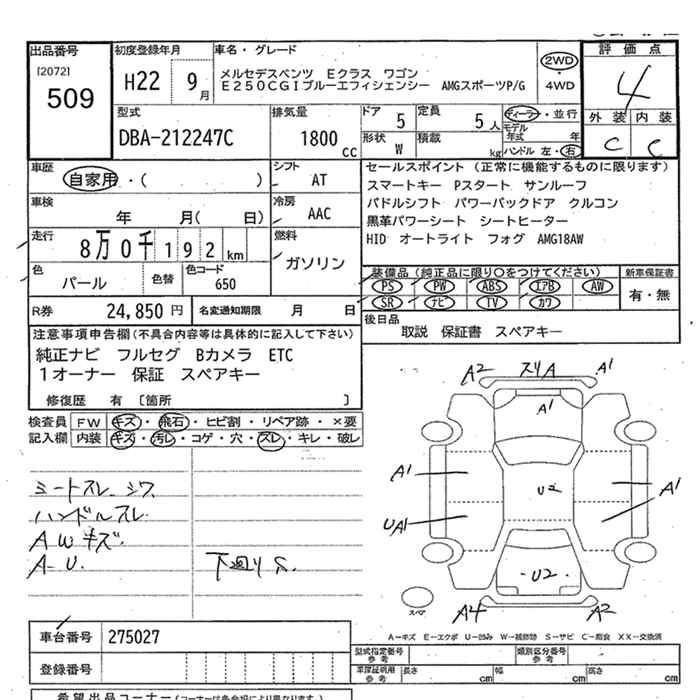 出品番号 初度登録年月 車名・グレード 評価点
[2072]
509
H22 9月
メルセデスベンツ Eクラス ワゴン
E250CGIブルーエフィシェンシー AMGスポーツP/G
2WD
・
4WD
4
型式 排気量 ドア 定員 ディーラー・並行 外装 内装
DBA-212247C 1800cc 5 5人 モデル年式 年 C C
形状 W 積載 kg ハンドル 左・右
車歴 シフト セールスポイント (正常に機能するものに限ります)
自家用・( ) AT スマートキー Pスタート サンルーフ
車検 冷房 パドルシフト パワーバックドア クルコン
年 月( 日) AAC 黒革パワーシート シートヒーター
走行 燃料 HID オートライト フォグ AMG18AW
8万0千192km ガソリン
色 色替 色コード 装備品(純正品に限り○をつけてください) 新車保証書
パール 650 PS PW ABS エアB AW 有・無
SR ナビ TV カワ
R券 24,850円 名変通知期限 月 日 後日品
取説 保証書 スペアキー
注意事項申告欄(不具合内容等は具体的に記入して下さい)
純正ナビ フルセグ Bカメラ ETC
1オーナー 保証 スペアキー
修復歴 有 〔箇所 〕
検査員 FW キズ・飛石・ヒビ割・リペア跡・×要
記入欄 内装 キズ・汚レ・コゲ・穴・スレ・キレ・破レ
シートスレ シワ
ハンドルスレ
AWキズ
A-U. 下廻りS.
A2 スリA A1
A1
A1 U2 A1
UA1
U2
スペア A4 A2
A-キズ E-エクボ U-凹み W-補修跡 S-サビ C-腐食 XX-交換済
車台番号 275027
型式指定番号 参考 類別区分番号 参考
登録番号 車庫証明用 参考 長さ cm 幅 cm 高さ cm
希望出品コーナー